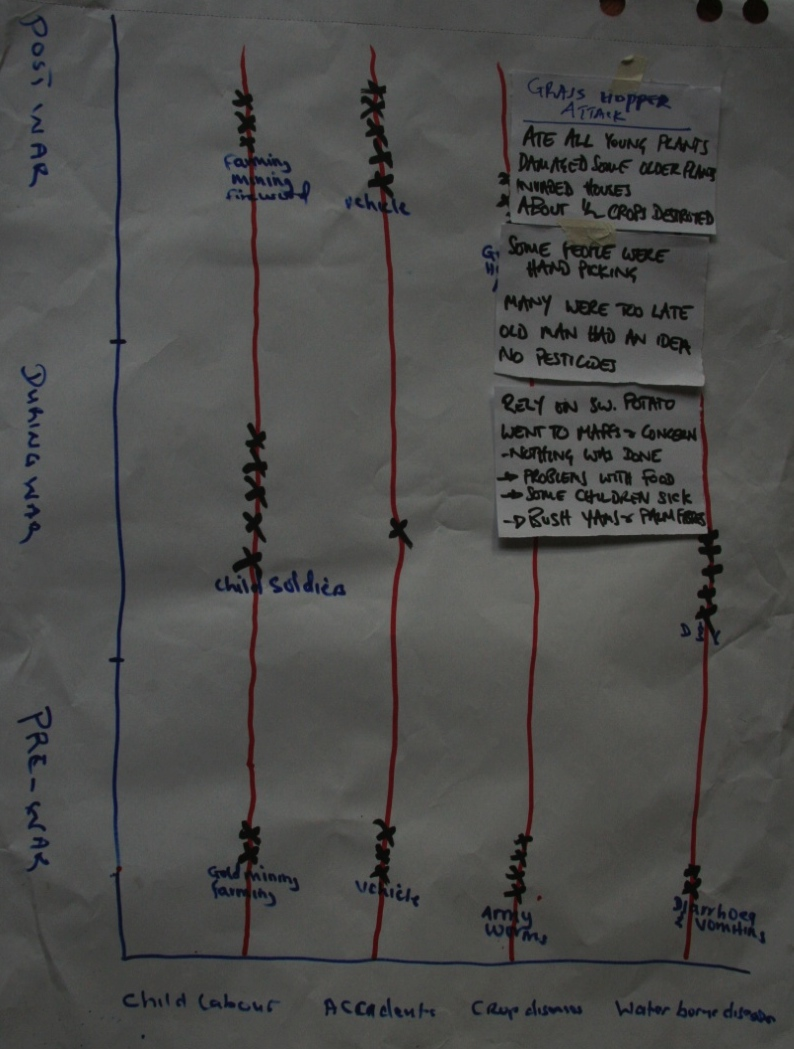 POST WAR
DURING WAR
PRE-WAR
Farming
mining
firewood
vehicle
GRASS HOPPER
ATTACK
ATE ALL YOUNG PLANTS
DAMAGED SOME OLDER PLANTS
INVADED HOUSES
ABOUT 1/2 CROPS DESTROYED
SOME PEOPLE WERE
HAND PICKING
MANY WERE TOO LATE
OLD MAN HAD AN IDEA
NO PESTICIDES
RELY ON SW. POTATO
WENT TO MAFFS & CONCERN
- NOTHING WAS DONE
→ PROBLEMS WITH FOOD
→ SOME CHILDREN SICK
→ BUSH YAMS &
child soldier
Gold mining
farming
vehicle
Army
worms
Diarrhoea
& vomiting
Child Labour
Accedents
Crop
Water borne